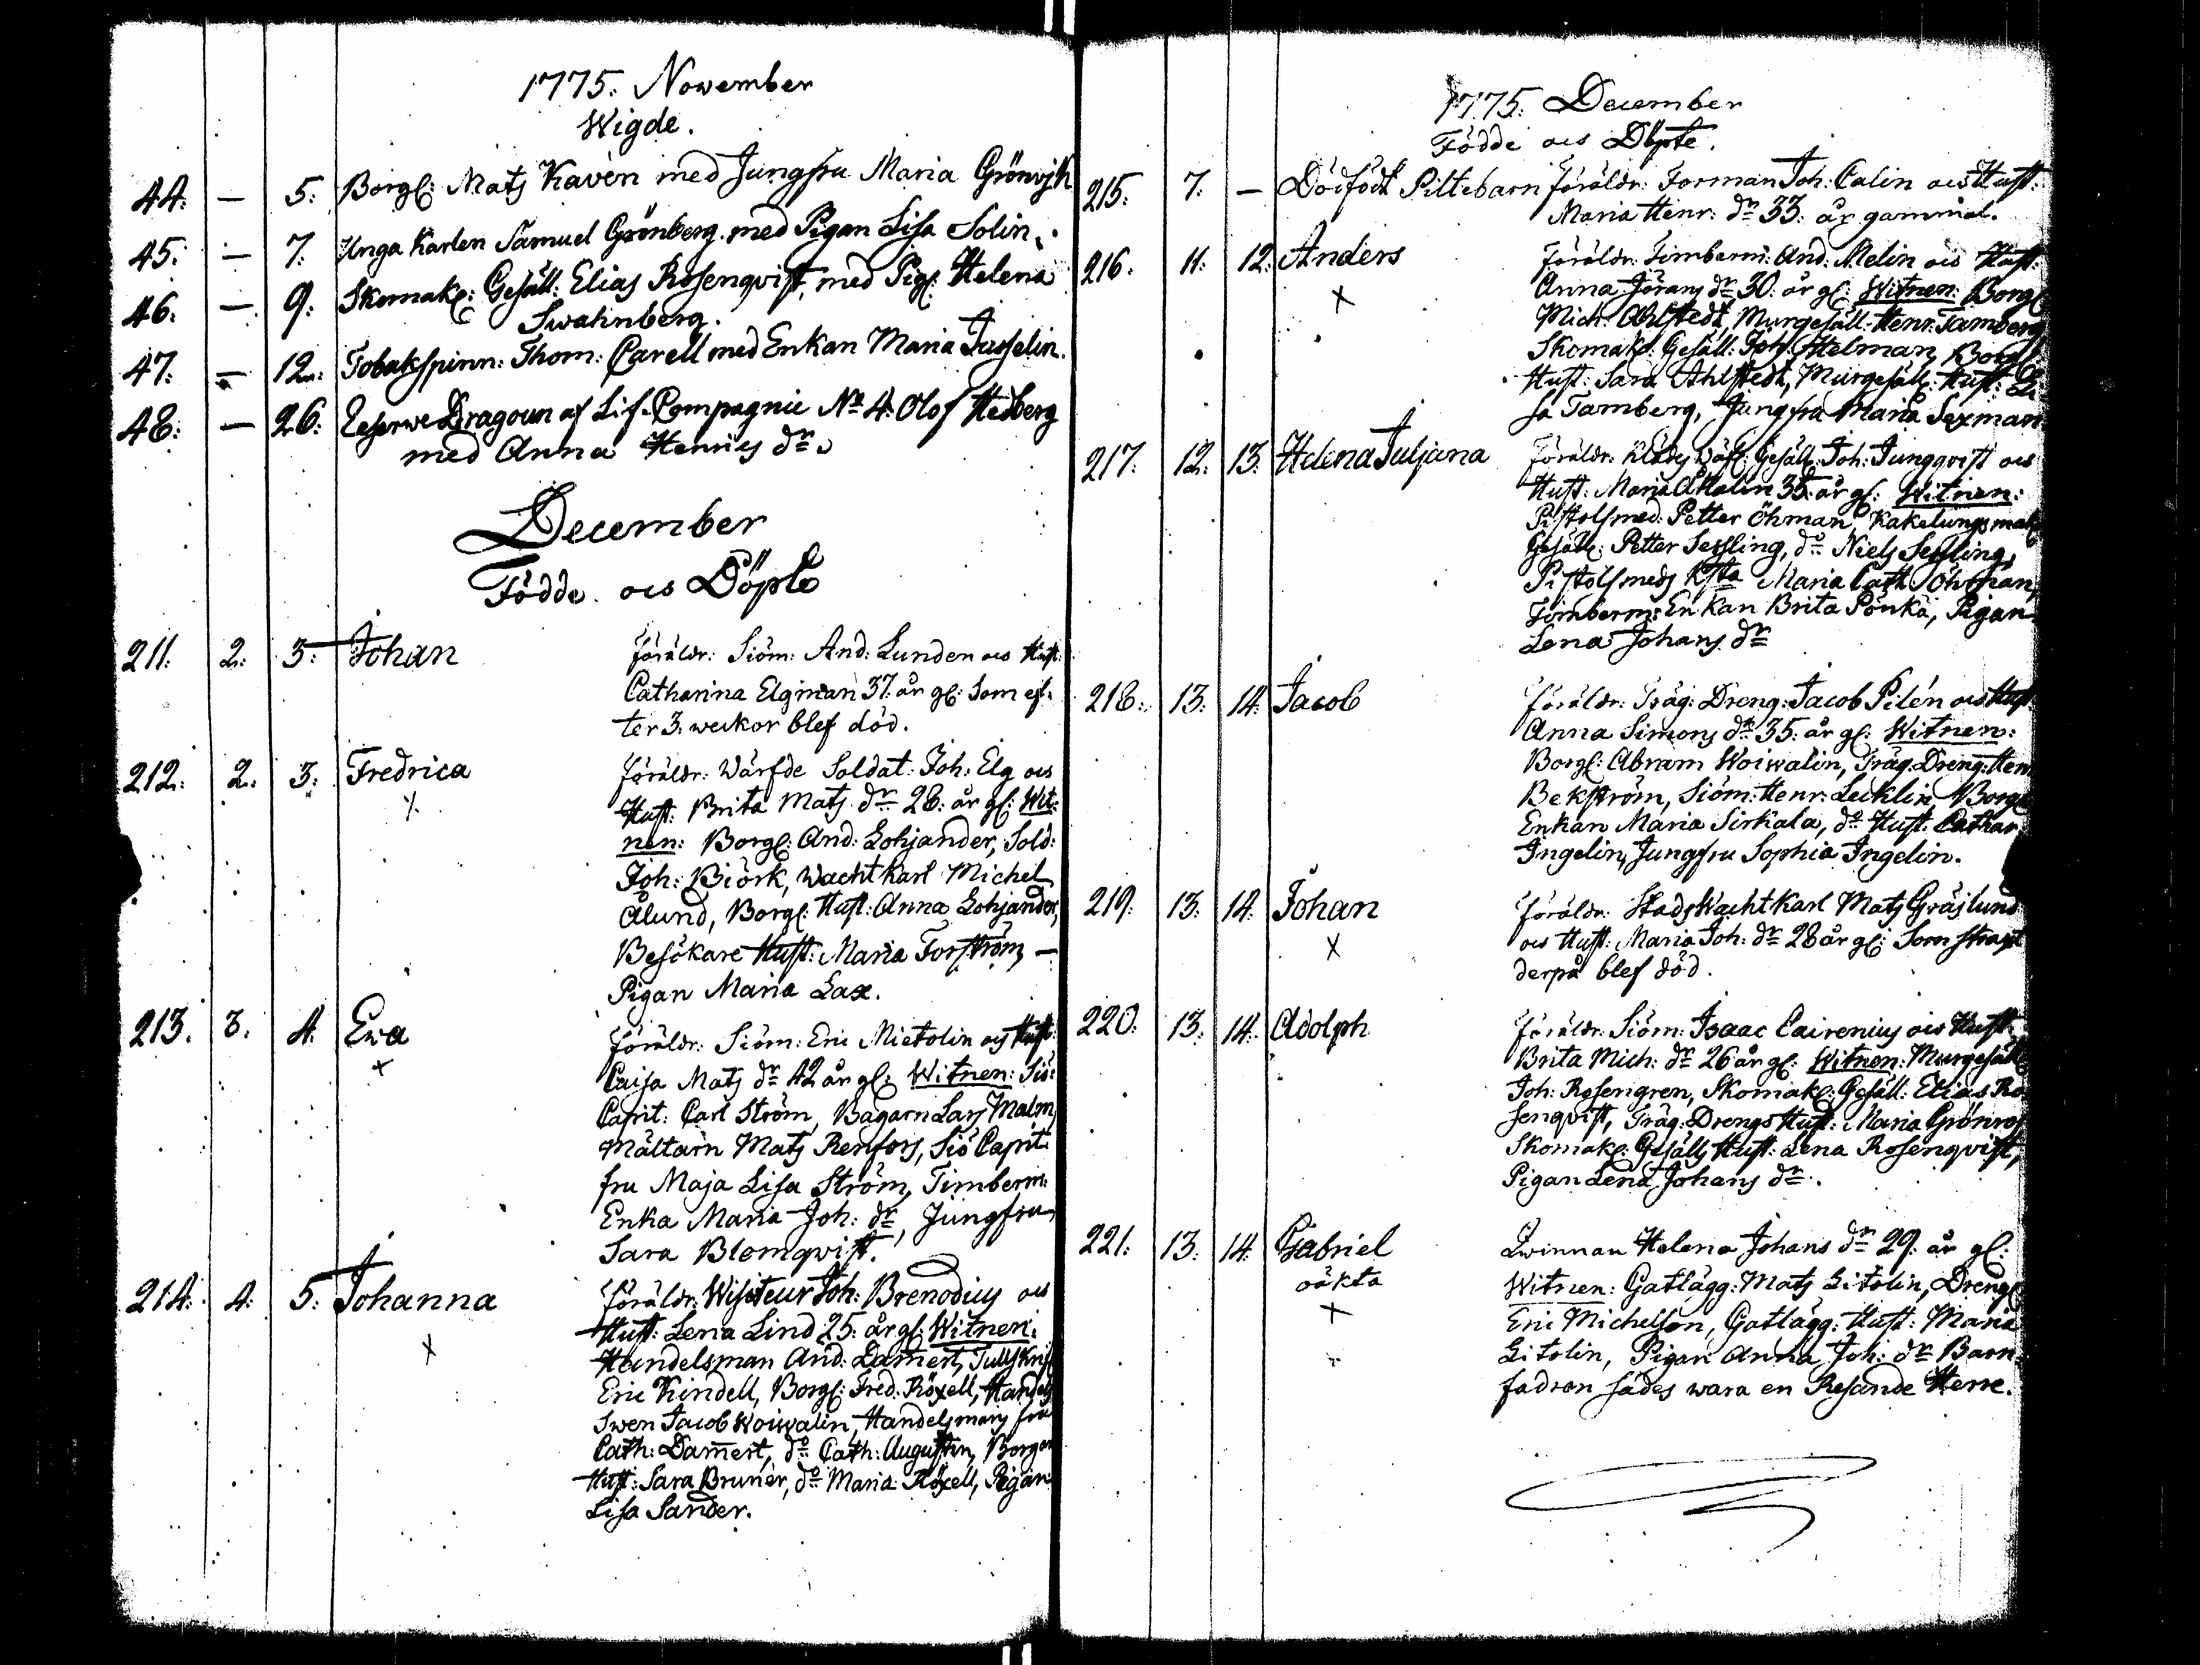 1775. November
Wigde.
44. — 5. Borgl: Mats Kavén med Jungfru Maria Grönvjk
45. — 7. Unga Karlen Samuel Grönberg med Pigan Lisa Solin.
46. — 9. Skomak: Gesäll: Elias Rosenqvist, med Pig: Helena
Swahnberg.
47. — 12. Tobakspinn: Thom: Carell med Enkan Maria Jusselin.
48. — 26. Reserwe Dragoun af Lif-Compagnie No 4. Olof Hedberg
med Anna Henrics dr.
December
Födde ocs Döpte
211. 2. 3. Johan föräldr: Siöm: And: Lunden ocs Hust:
Catharina Elgman 37. år gl: som ef-
ter 3. weckor blef död.
212. 2. 3. Fredrica föräldr: Wärfde Soldat: Joh: Elg ocs
x Hust: Brita Mats dr 28. år gl: Wit-
nen: Borgl: And: Lohjander, Sold:
Joh: Biörk, Wachtkarl Michel
Ålund, Borgl: Hust: Anna Lohjander,
Besökare Hust: Maria Forström, —
Pigan Maria Lax.
213. 3. 4. Eva föräldr: Siöm: Eric Mietolin ocs Hust:
x Caisa Mats dr 42 år gl: Witnen: Siö-
Capit: Carl Ström, Bagarn Lars Malm,
Mältarn Mats Renfors, Siö Capit:
fru Maja Lisa Ström, Timberm:
Enka Maria Joh: dr, Jungfru
Sara Blomqvist.
214. 4. 5. Johanna föräldr: Wisiteur Joh: Brenodius ocs
x Hust: Lena Lind 25. år gl: Witnen:
Handelsman And: Damert, Tullskrif
Eric Kindell, Borgl: Fred: Röxell, Handels
Swen Jacob Woiwalin, Handelsmans fru
Cath: Damert, do Cath: Augustin, Borgar
Hust: Sara Brunér, do Maria Röxell, Pigan
Lisa Sander.
1775. December
Födde ocs Döpte.
215. 7. — Dödfödt Piltebarn föräldr: Forman Joh: Calin ocs Hust:
Maria Henr: dr 33. år gammal.
216. 11. 12. Anders föräldr: Timberm: And: Melin ocs Hust:
x Anna Jörans dr 30. år gl: Witnen: Borgl
Mich: Ahlstedt, Murgesäll: Henr: Tamberg
Skomak: Gesäll: Joh: Helman, Borgl
Hust: Sara Ahlstedt, Murgesäll: Hust: Li
sa Tamberg, Jungfru Maria Sexman
217. 12. 13. Helena Juljana föräldr: Klädes Wäf: Gesäll: Joh: Jungqvist ocs
Hust: Maria Ahalin 35. år gl: Witnen:
Pistolsmed: Petter Öhman, Kakelungs mak
Gesäll: Petter Sessling, do Niels Sessling,
Pistolsmeds Maria Cath: Öhman,
Timberm: Enkan Brita Pönkä, Pigan
Lena Johans dr
218. 13. 14. Jacob föräldr: Träg: Dreng: Jacob Pilén ocs Hust:
Anna Simons dr 35. år gl: Witnen:
Borgl: Abram Woiwalin, Träg: Dreng: Hen
Bekström, Siöm: Henr: Lecklin, Borgl
Enkan Maria Sirkala, do Hust: Cathar:
Ingelin, Jungfru Sophia Ingelin.
219. 13. 14. Johan föräldr: Stads Wachtkarl Mats Gräslund
x ocs Hust: Maria Joh: dr 28 år gl: Som straxt
derpå blef död.
220. 13. 14. Adolph föräldr: Siöm: Isaac Cairenius ocs Hust:
Brita Mich: dr 26 år gl: Witnen: Murgesäll
Joh: Rosengren, Skomak: Gesäll: Elias Ro
senqvist, Träg: Drengs Hust: Maria Grönros
Skomak: Gesälls Hust: Lena Rosenqvist,
Pigan Lena Johans dr.
221. 13. 14. Gabriel Qwinnan Helena Johans dr 29. år gl:
oäkta Witnen: Gatlägg: Mats Litolin, Drengl
x Eric Michelson, Gatlägg: Hust: Maria
Litolin, Pigan Anna Joh: dr Barn-
fadren sades wara en Resande Herre.